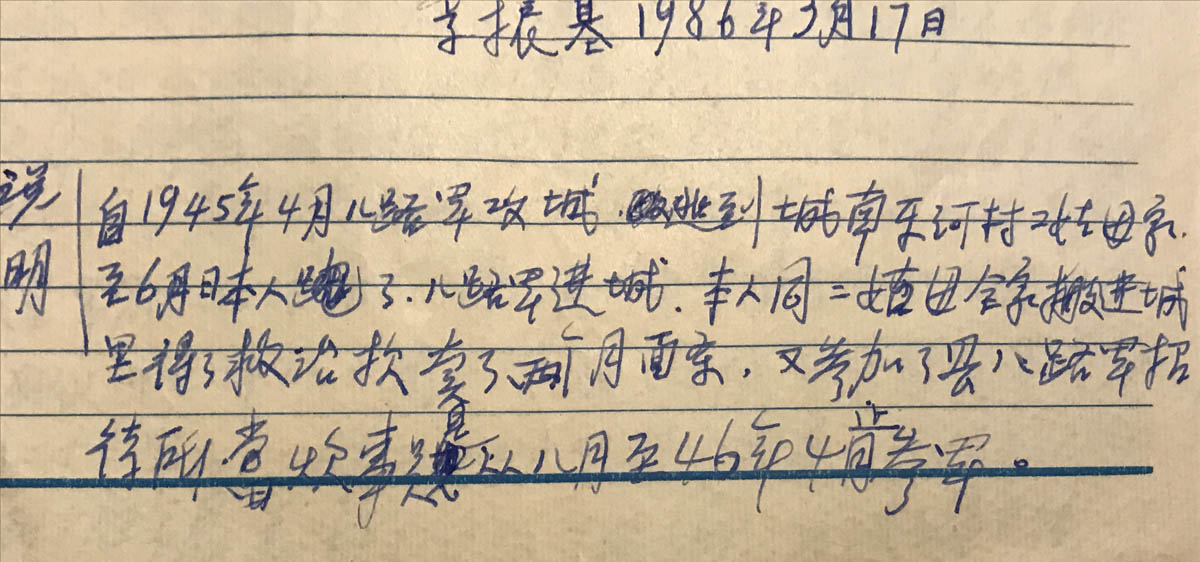 李振基 1986年3月17日
说明
自1945年4月八路军攻城.逃到城南东河村 母家.
至6月日本人跑了.八路军进城.本人同二 母全家搬进城
里得了救治款卖了两个月面条,又参加了县八路军招
待所当炊事员是从八月至46年4月 参军。